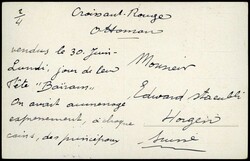 2/4
Croissant-Rouge
Ottoman
vendus le 30 Juin-
Lundi, jour de leur
Fête "Bairam"
On avait aménagé
expressément, à chaque
coins, des principaux
Monsieur
Edward Staeubli
Horgen
Suisse